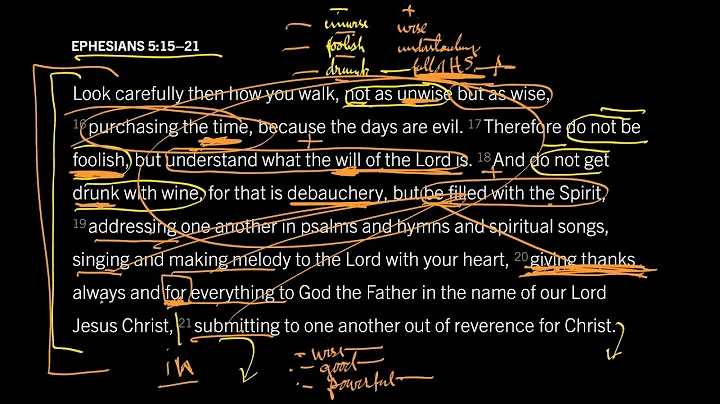 — unwise wise
— foolish understanding
— drunk — full of H.S.
EPHESIANS 5:15–21
Look carefully then how you walk, not as unwise but as wise,
16 purchasing the time, because the days are evil. 17 Therefore do not be
foolish, but understand what the will of the Lord is. 18 And do not get
drunk with wine, for that is debauchery, but be filled with the Spirit,
19 addressing one another in psalms and hymns and spiritual songs,
singing and making melody to the Lord with your heart, 20 giving thanks
always and for everything to God the Father in the name of our Lord
Jesus Christ, 21 submitting to one another out of reverence for Christ.
in
– wise
– good
– powerful